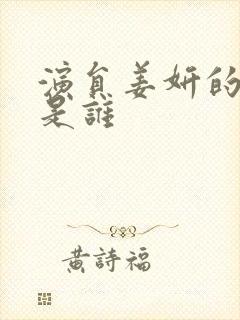 演員姜妍的
是誰
黄詩福